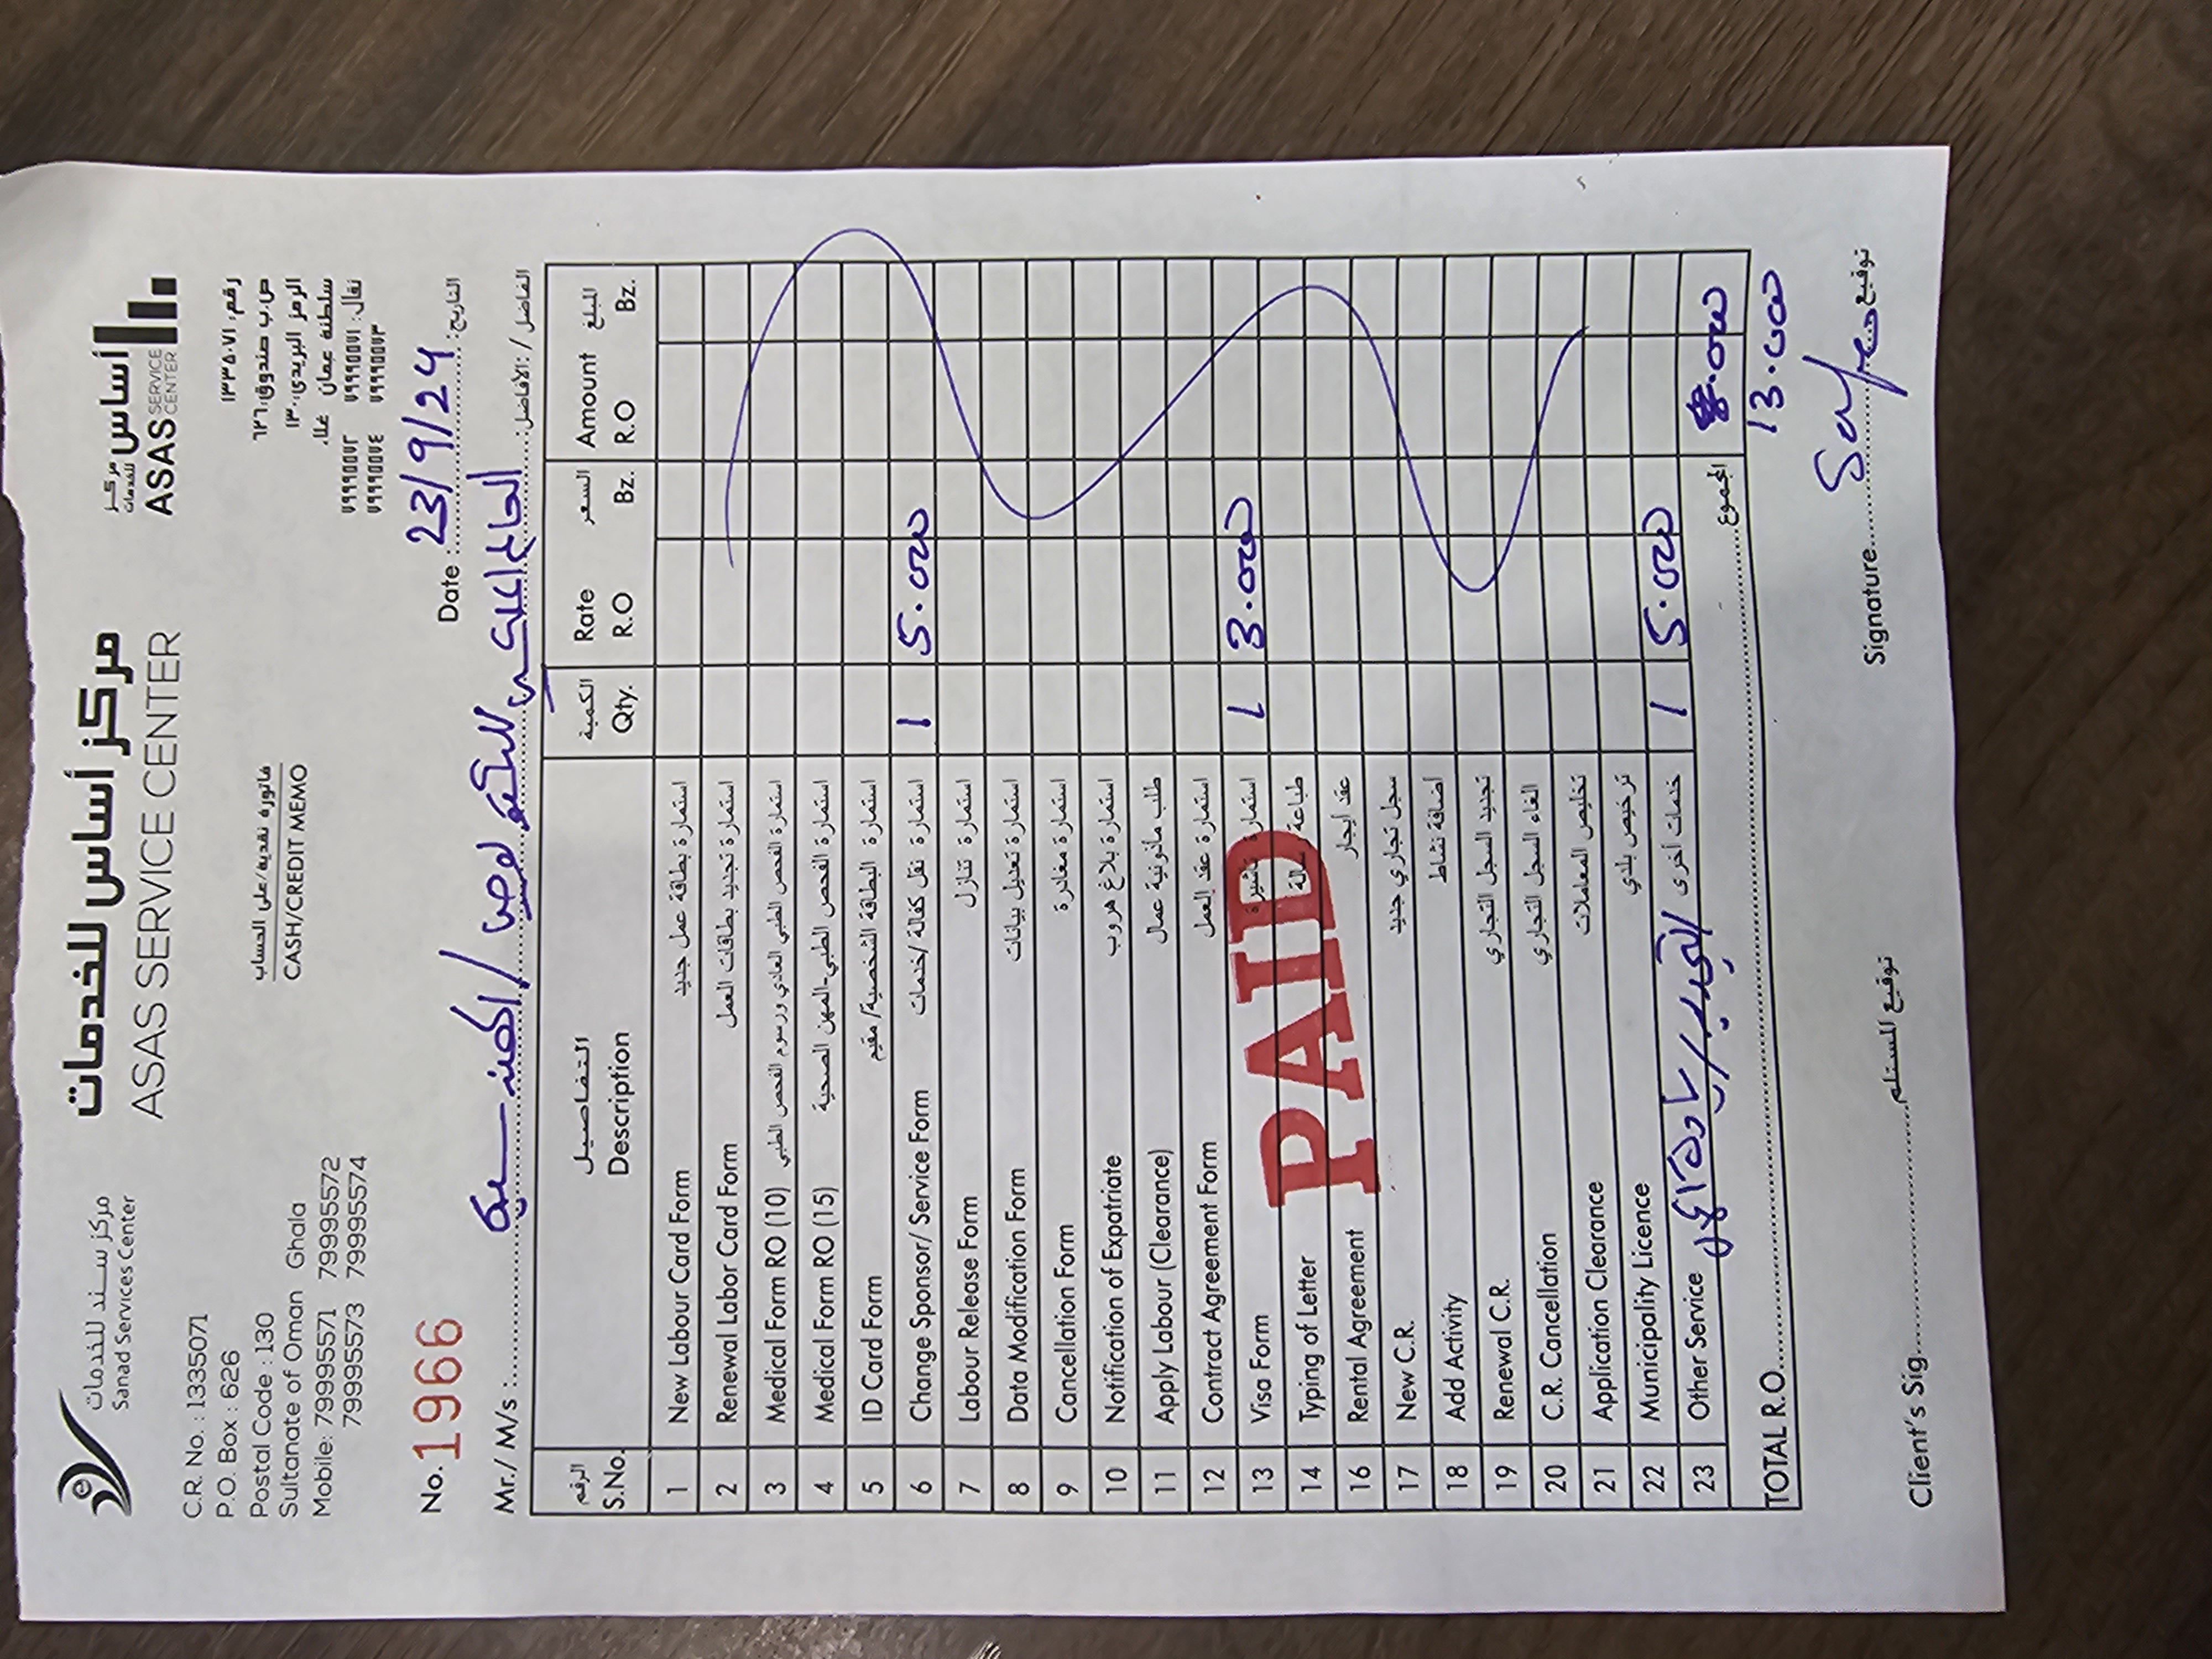 مركز سند للخدمات
Sanad Services Center
مركز أساس للخدمات
ASAS SERVICE CENTER
مركز أساس
للخدمات
ASAS SERVICE CENTER
C.R. No. : 1335071
P.O. Box : 626
Postal Code : 130
Sultanate of Oman Ghala
Mobile: 79995571 79995572
79995573 79995574
فاتورة نقدية/على الحساب
CASH/CREDIT MEMO
رقم: ١٣٣٥٠٧١
ص.ب صندوق: ٦٢٦
الرمز البريدي: ١٣٠
سلطنة عمان غلا
نقال: ٧٩٩٩٥٥٧١ ٧٩٩٩٥٥٧٢
٧٩٩٩٥٥٧٣ ٧٩٩٩٥٥٧٤
No. 1966
Date : 23/9/24 التاريخ:
Mr./ M/s : الفاضل / الأفاضل:
الرقم التفاصيل الكمية السعر المبلغ
S.No. Description Qty. Rate Amount
R.O Bz. R.O Bz.
1 New Labour Card Form استمارة بطاقة عمل جديد
2 Renewal Labor Card Form استمارة تجديد بطاقات العمل
3 Medical Form RO (10) استمارة الفحص الطبي العادي ورسوم الفحص الطبي
4 Medical Form RO (15) استمارة الفحص الطبي-المهن الصحية
5 ID Card Form استمارة البطاقة الشخصية/ مقيم
6 Change Sponsor/ Service Form استمارة نقل كفالة /خدمات 1 5.000
7 Labour Release Form استمارة تنازل
8 Data Modification Form استمارة تعديل بيانات
9 Cancellation Form استمارة مغادرة
10 Notification of Expatriate استمارة بلاغ هروب
11 Apply Labour (Clearance) طلب مأذونية عمال
12 Contract Agreement Form استمارة عقد العمل
13 Visa Form استمارة تأشيرة 1 3.000
14 Typing of Letter طباعة رسالة
16 Rental Agreement عقد ايجار
PAID
17 New C.R. سجل تجاري جديد
18 Add Activity اضافة نشاط
19 Renewal C.R. تجديد السجل التجاري
20 C.R. Cancellation الغاء السجل التجاري
21 Application Clearance تخليص المعاملات
22 Municipality Licence ترخيص بلدي
23 Other Service خدمات أخرى 1 5.000
TOTAL R.O. المجموع 13.000
Client's Sig. توقيع المستلم
Signature توقيع